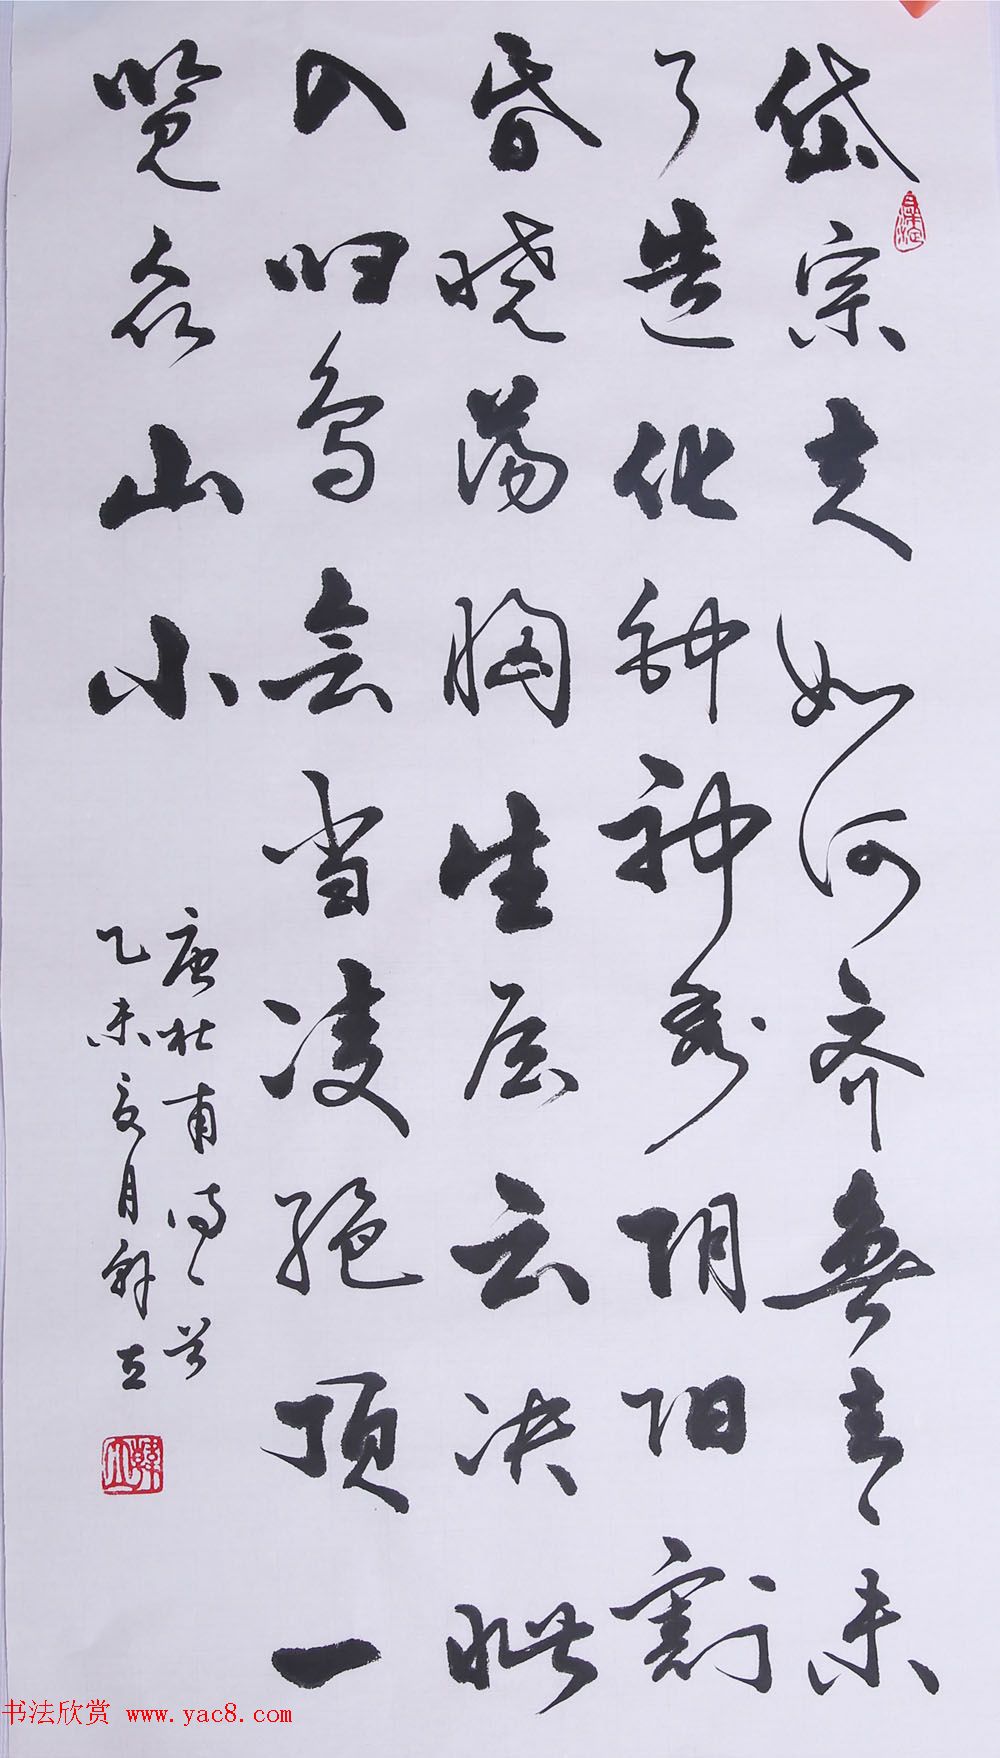 岱宗夫如何齐鲁青未
了造化钟神秀阴阳割
昏晓荡胸生层云决眦
入归鸟会当凌绝顶一
览众山小
唐杜甫诗一首
乙未夏月韩立
书法欣赏 www.yac8.com